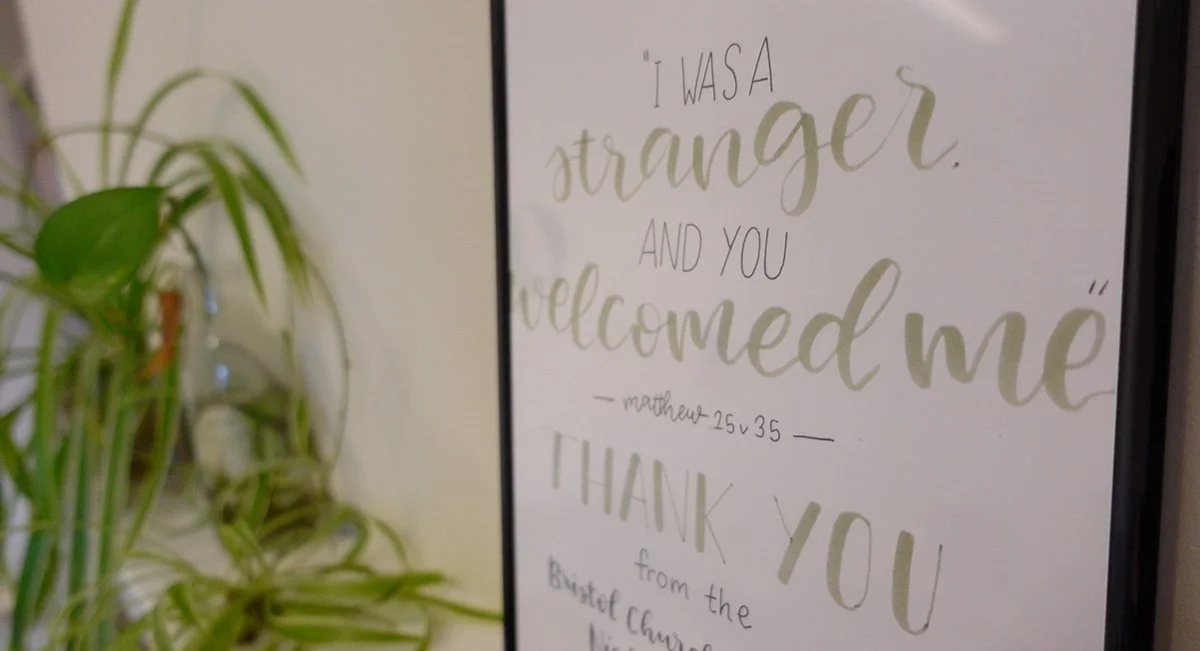 "I WAS A
stranger.
AND YOU
welcomed me"
— matthew 25 v 35 —
THANK YOU
from the
Bristol